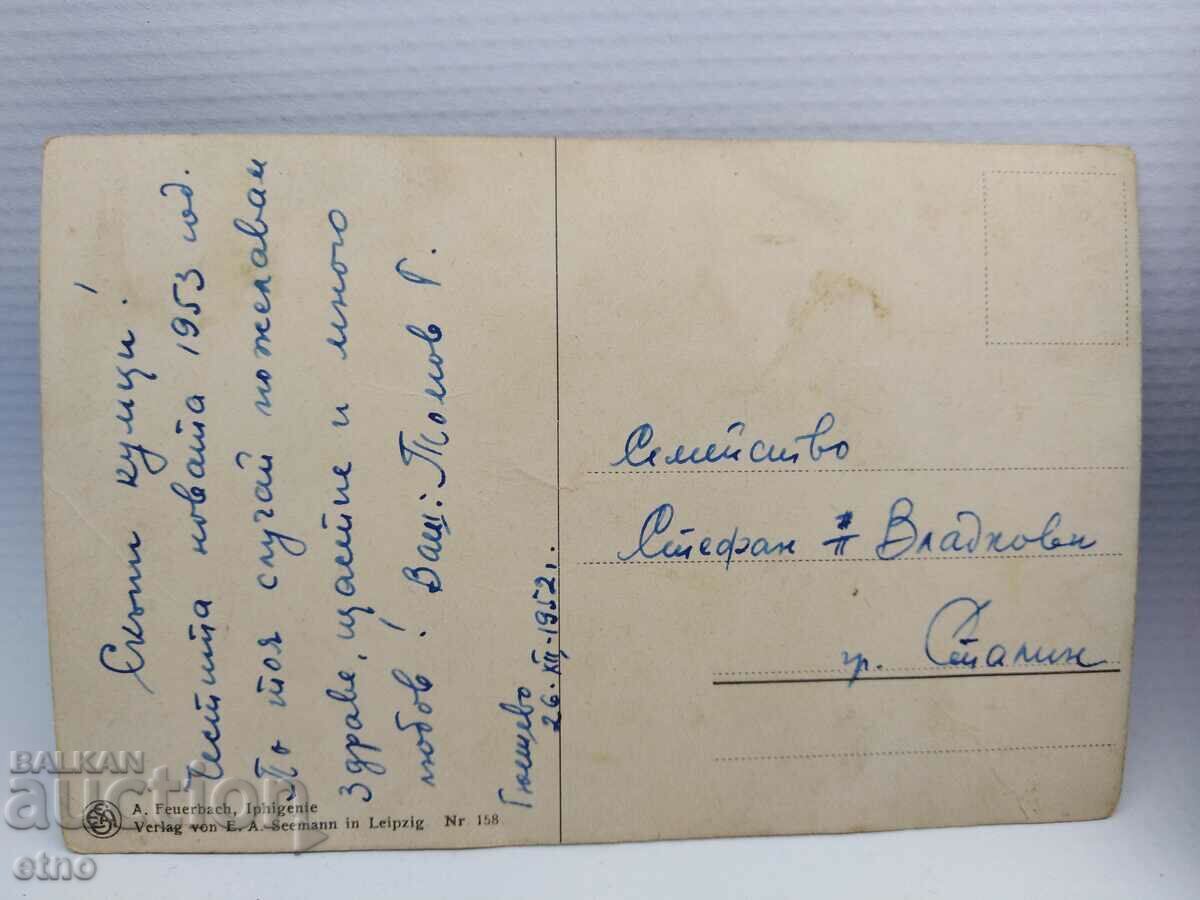 Скъпи кумци!
Честита новата 1953 год.
По тоя случай пожелавам
здраве, щастие и много
любов! Ваш: Томов Г.
Гюешево
26.XII.1952.
Семейство
Стефан Владкови
гр. Сталин
A. Feuerbach, Iphigenie
Verlag von E. A. Seemann in Leipzig Nr 158
BALKAN
auction
etno